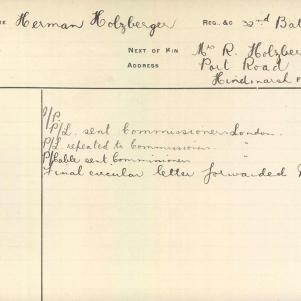 Herman Holzberger Reg., &c 32nd Bat
Next of Kin Mrs R. Holzber
Address Port Road
Hindmarsh
P/L. sent Commissioners London.
P/L. repeated to Commissioners "
P/Cable sent Commissioners "
Final circular letter forwarded